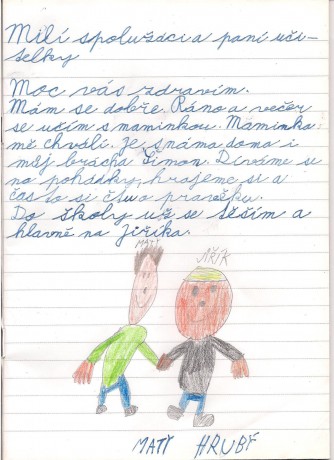 Milí spolužáci a paní uči-
telky
Moc vás zdravím.
Mám se dobře. Ráno a večer
se učím s maminkou. Maminka
mě chválí. Je snáma doma i
můj brácha Šimon. Díváme se
na pohádky, hrajeme si a
často si čtu o pravěku.
Do školy už se těším a
hlavně na Jiříka.
MATY
JIŘÍK
MATY HRUBÝ